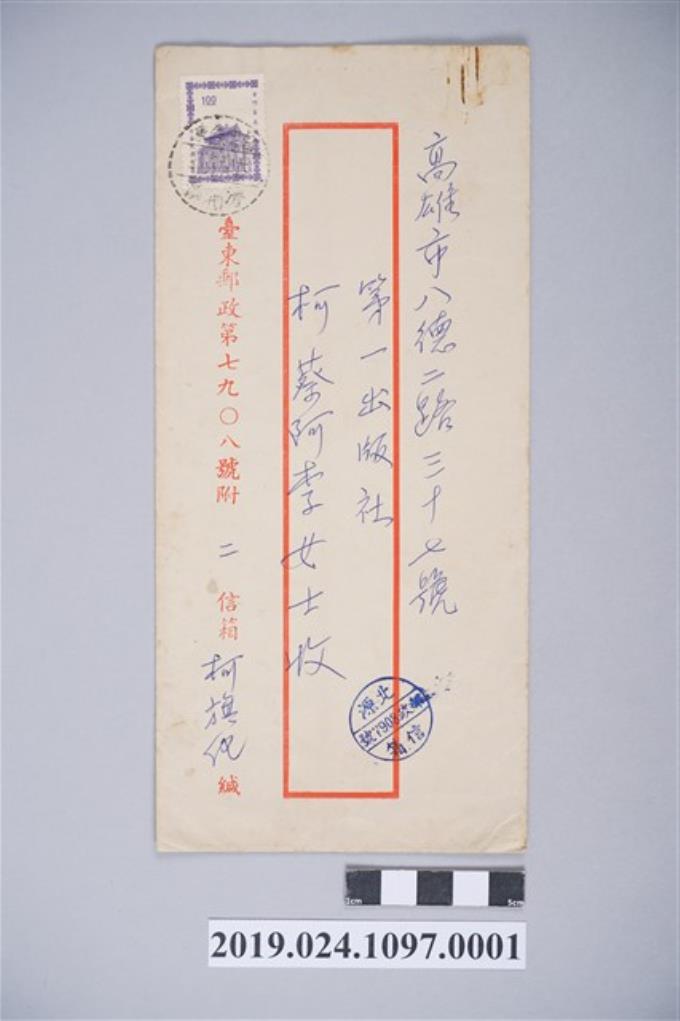 高雄市八德二路三十七號
第一出版社
柯蔡阿李女士收
100
臺東郵政第七九〇八號附 二 信箱 柯旗化 緘
北源
郵政7908號
信箱
1cm
5cm
2019.024.1097.0001